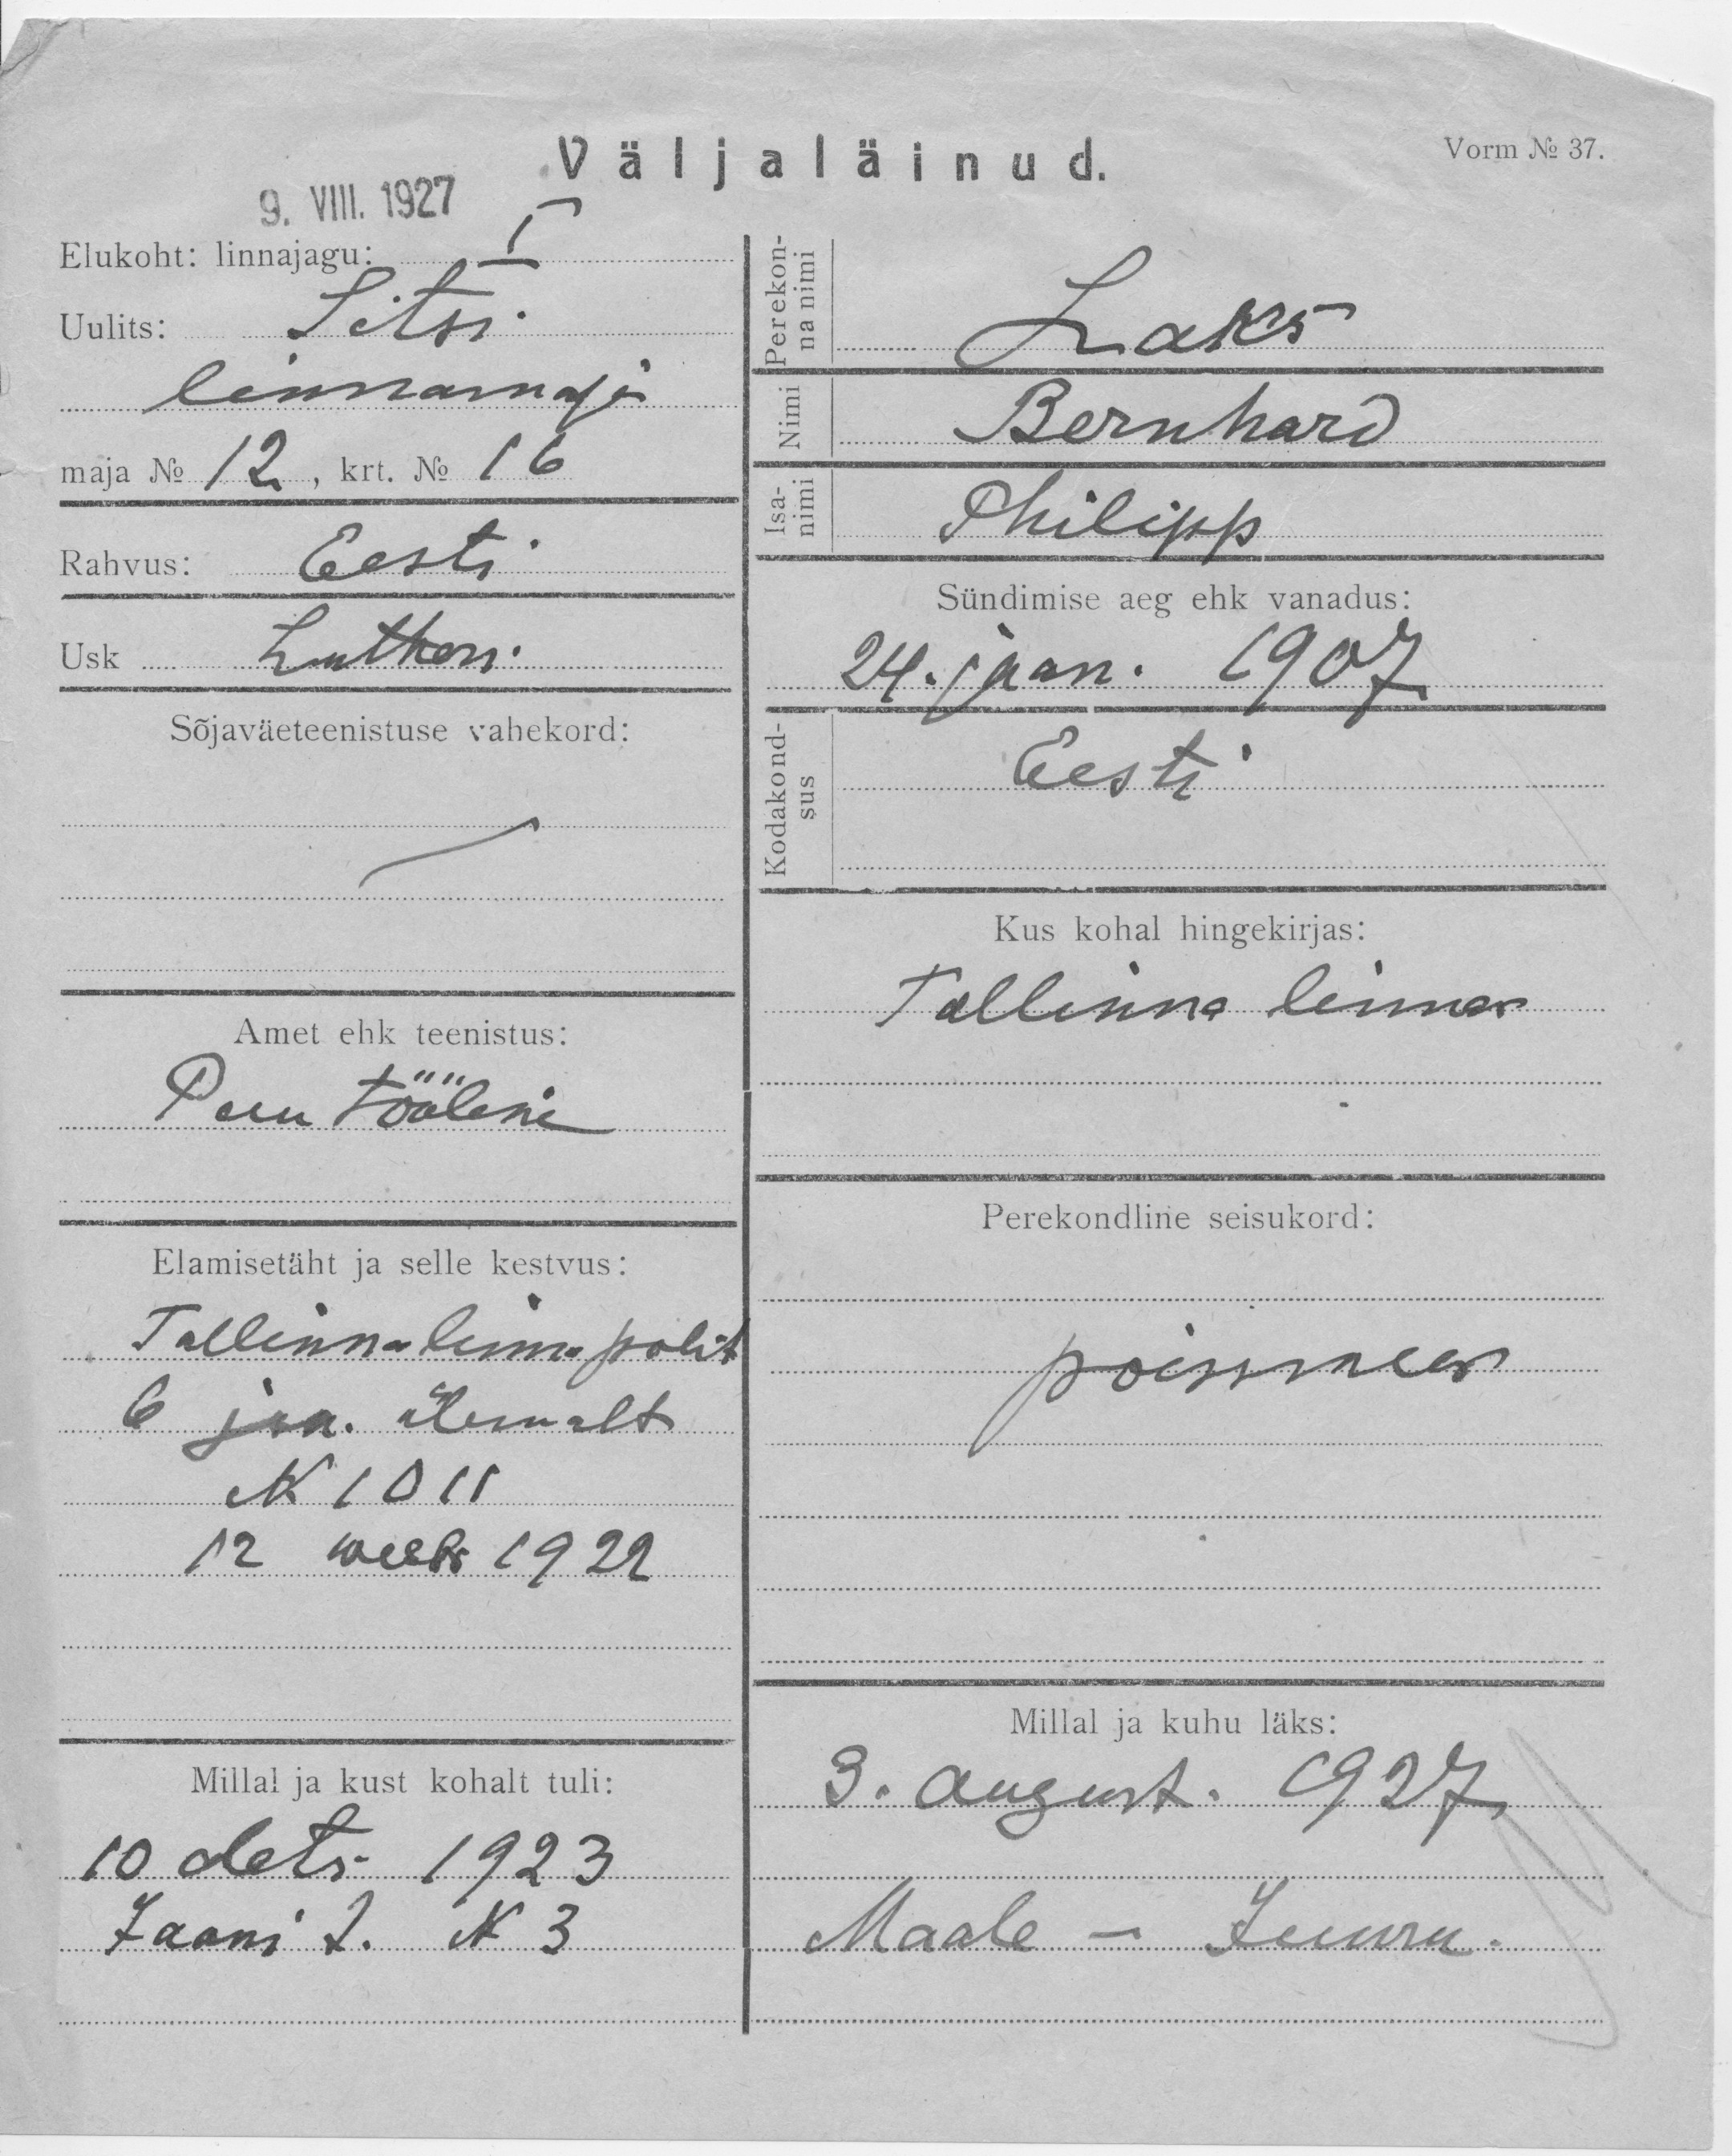 Väljaläinud.
Vorm № 37.
9. VIII. 1927
Elukoht: linnajagu: I
Uulits: Sitsi
linnamaja
maja № 12, krt. № 16
Rahvus: Eesti
Usk Lutheri
Sõjaväeteenistuse vahekord:
Amet ehk teenistus:
Puu tööline
Elamisetäht ja selle kestvus:
Tallinna linna polit
6 jsk. ülemalt
N 1011
12 weebr 1922
Millal ja kust kohalt tuli:
10 dets. 1923
Jaani t. N 3
Perekonna nimi
Laks
Nimi
Bernhard
Isanimi
Philipp
Sündimise aeg ehk vanadus:
24. jaan. 1907
Kodakondsus
Eesti
Kus kohal hingekirjas:
Tallinna linnas
Perekondline seisukord:
poissmees
Millal ja kuhu läks:
3. august. 1927
Maale – Juuru.